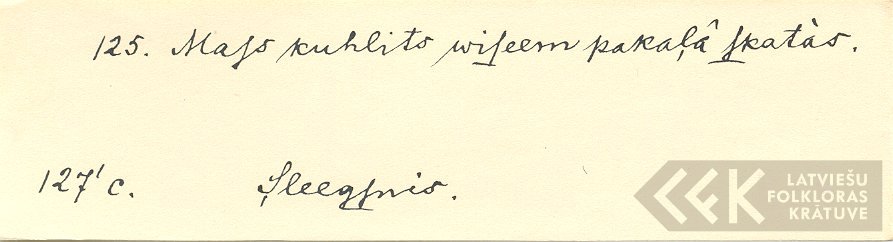 125. Maſs kuhlits wiſeem pakaļâ ſkatàs.
127'c. Sleegſnis.
LATVIEŠU
FOLKLORAS
KRĀTUVE